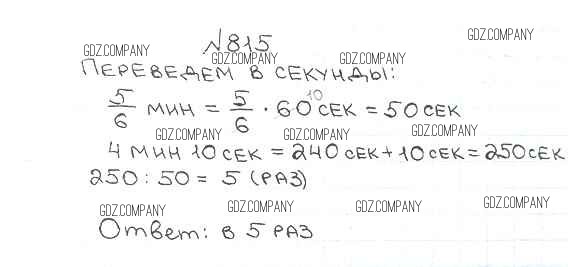 №815
Переведем в секунды:
5/6 мин = 5/6 · 60 10 сек = 50 сек
4 мин 10 сек = 240 сек + 10 сек = 250 сек
250 : 50 = 5 (раз)
Ответ: в 5 раз
GDZ.COMPANY
GDZ.COMPANY
GDZ.COMPANY
GDZ.COMPANY
GDZ.COMPANY
GDZ.COMPANY
GDZ.COMPANY
GDZ.COMPANY
GDZ.COMPANY
GDZ.COMPANY
GDZ.COMPANY